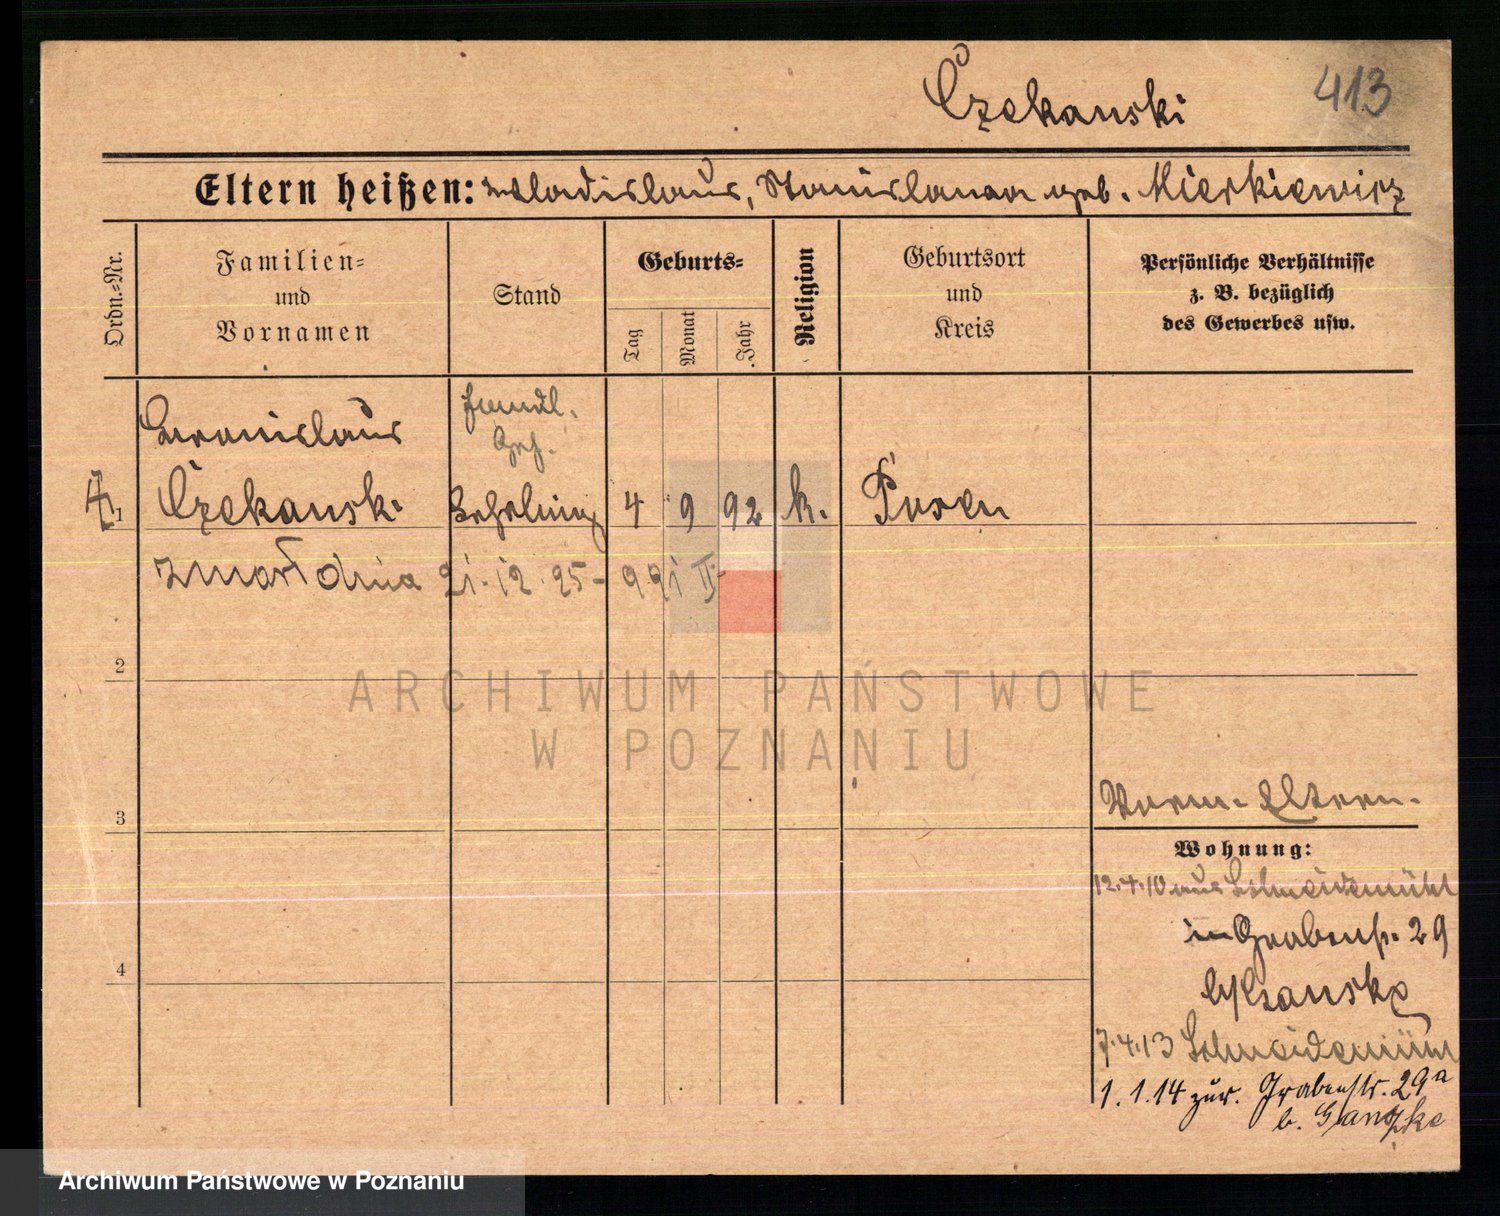 Czekanski
413
Eltern heißen: Wladislaus, Stanislawa geb. Mierkiewicz
Ordn.-Nr.
Familien-
und
Vornamen
Stand
Geburts-
Tag
Monat
Jahr
Religion
Geburtsort
und
Kreis
Persönliche Verhältnisse
z. B. bezüglich
des Gewerbes usw.
Handl.
Geh.
Bronislaus
1 Czekanski 4 9 92 k. Posen
zmarł dnia 21.12.25-
2
ARCHIWUM PAŃSTWOWE
W POZNANIU
3
Eltern.
Wohnung:
12.4.10 aus Schneidemühl
in Grabenstr. 29
4
7.4.13 Schneidemühl
1.1.14 zur. Grabenstr. 29a
b. Ganzke
Archiwum Państwowe w Poznaniu